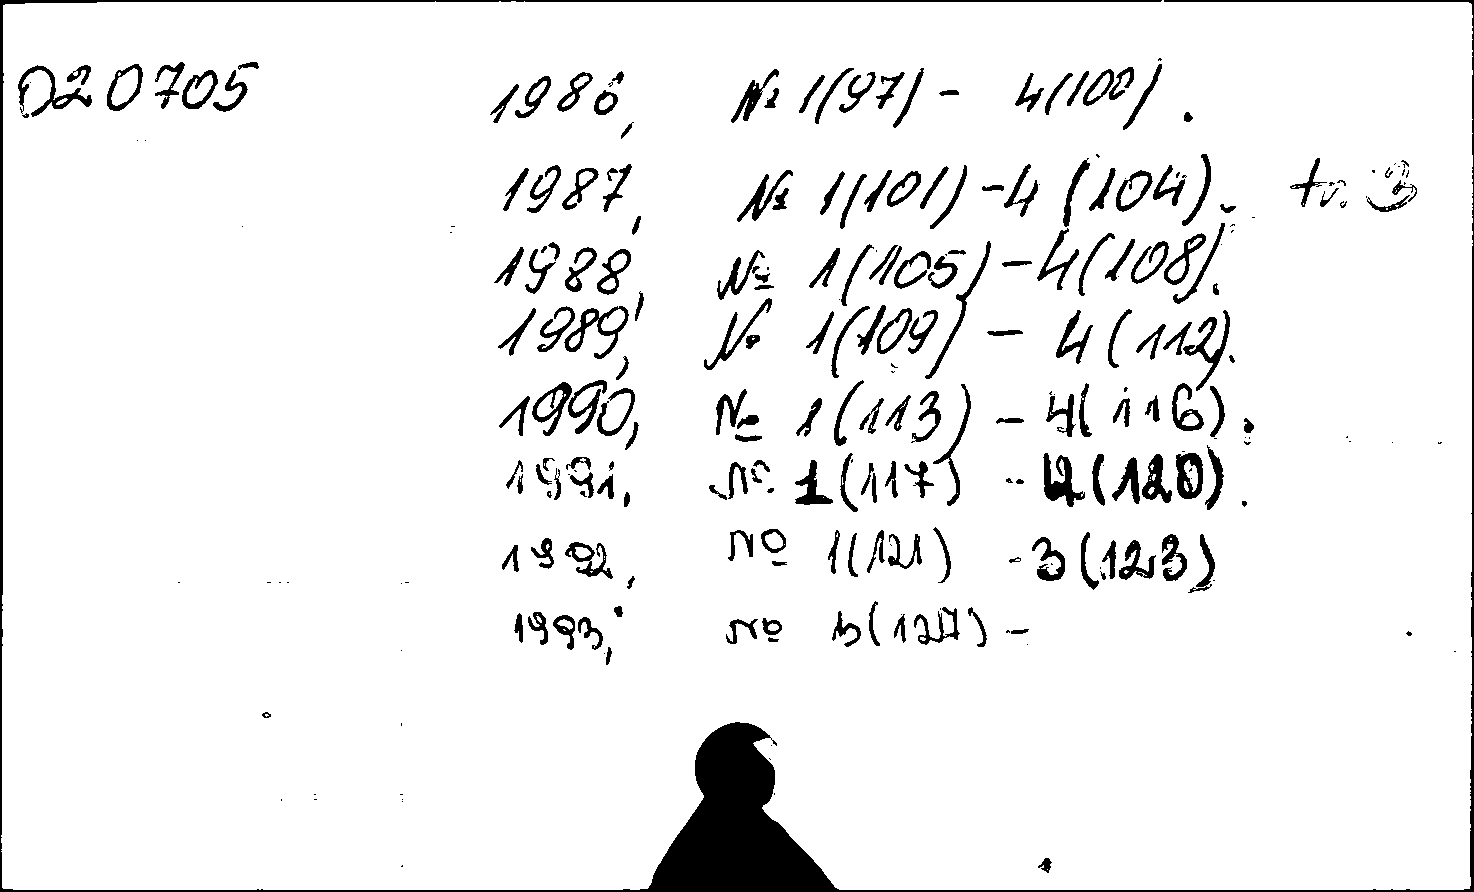 020705 1986, № 1(97) - 4(100).
1987, № 1(101) - 4(104). tr. 3
1988, № 1(105) - 4(108).
1989, № 1(109) - 4(112).
1990, № 1(113) - 4(116).
1991, № 1(117) - 4(120).
1992, № 1(121) - 3(123)
1993, № 3(127) -